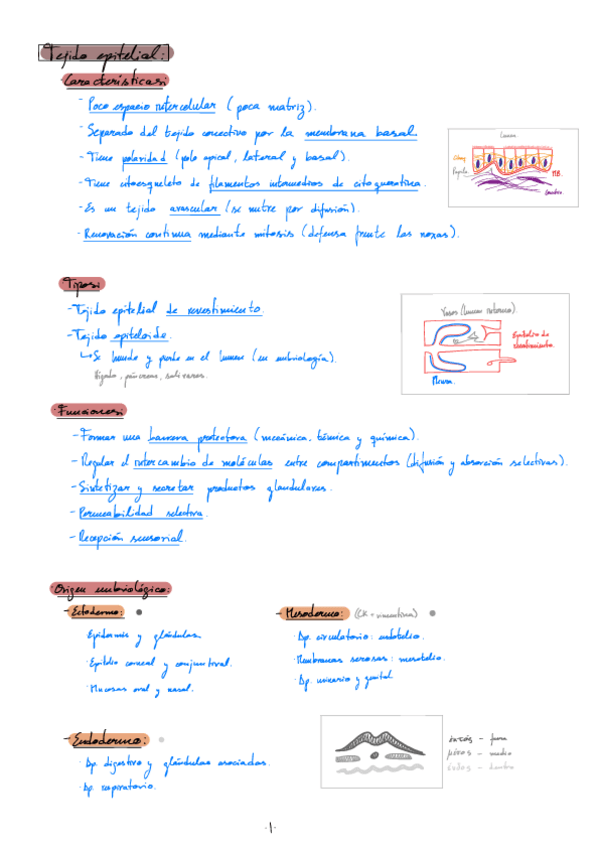 Tejido epitelial:
Características:
- Poco espacio intercelular (poca matriz).
- Separado del tejido conectivo por la membrana basal.
- Tiene polaridad (polo apical, lateral y basal).
- Tiene citoesqueleto de filamentos intermedios de citoqueratina.
- Es un tejido avascular (se nutre por difusión).
- Renovación continua mediante mitosis (defensa frente las noxas).
Lumen
M.B.
Tipos:
- Tejido epitelial de revestimiento.
- Tejido epiteloide.
↳ Se hunde y pierde en el lumen (en embriología).
Hígado, páncreas, salivares.
Vasos (lumen interno).
Epitelio de
revestimiento
Pleura
Funciones:
- Formar una barrera protectora (mecánica, térmica y química).
- Regular el intercambio de moléculas entre compartimentos (difusión y absorción selectivas).
- Sintetizar y secretar productos glandulares.
- Permeabilidad selectiva.
- Recepción sensorial.
Origen embriológico:
- Ectodermo:
Epidermis y glándulas.
· Epitelio corneal y conjuntival.
· Mucosas oral y nasal.
- Mesodermo: (CK + vimentina)
· Ap. circulatorio: endotelio.
· Membranas serosas: mesotelio.
· Ap. urinario y genital.
- Endodermo:
· Ap. digestivo y glándulas asociadas.
· Ap. respiratorio.
- fuera
- medio
- dentro
·1·